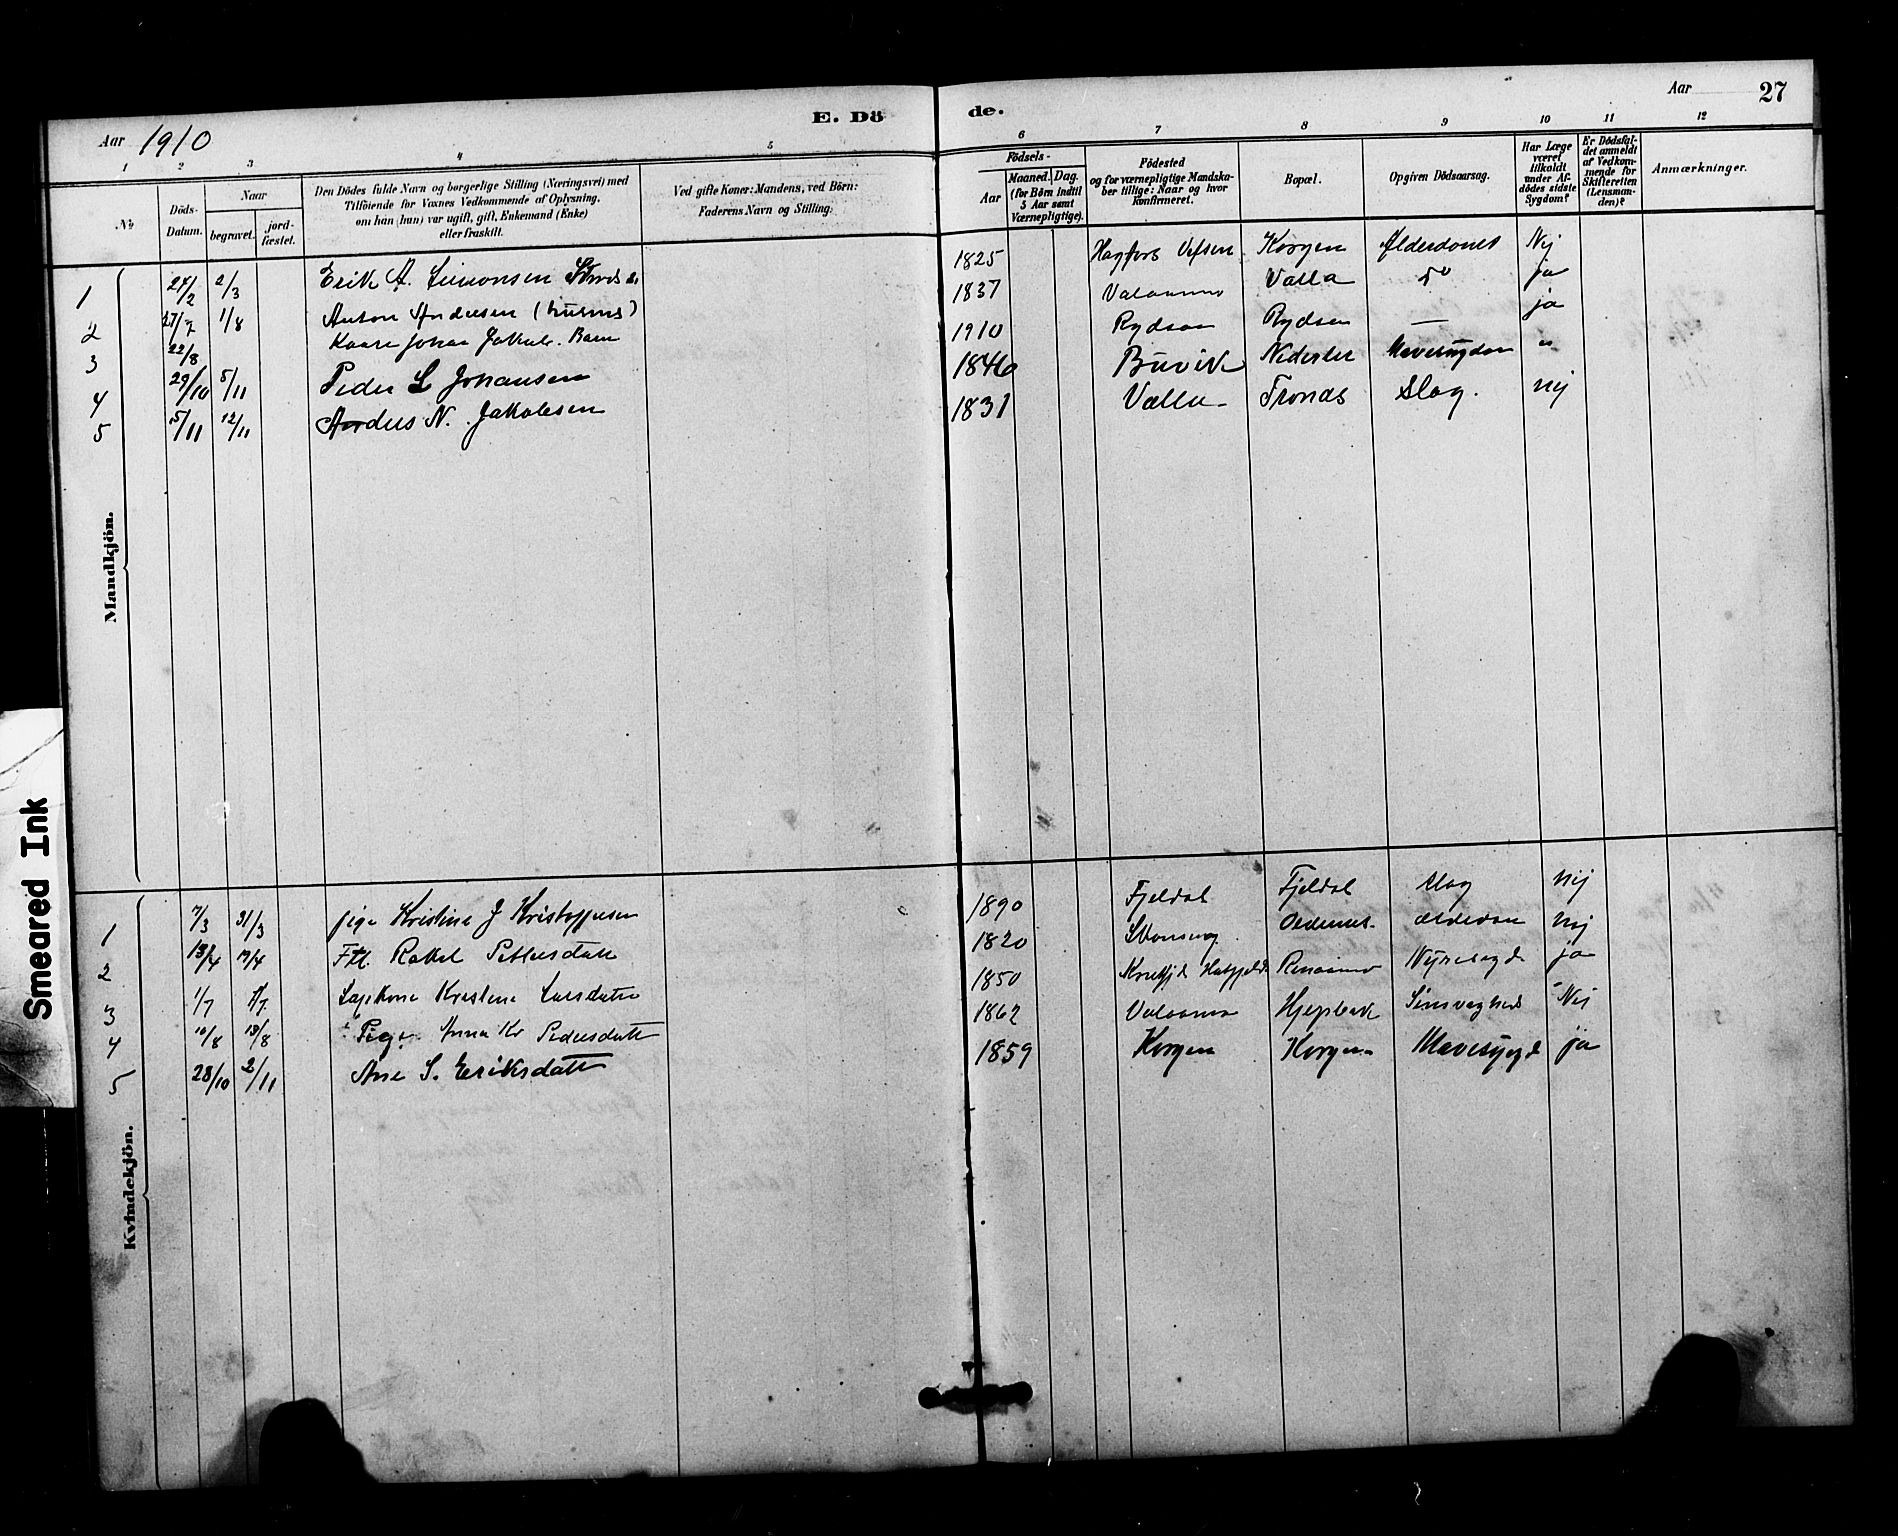 Aar 1910
E. Dö
de.
Aar
27
1 2 3 4 5
6 7 8 9 10 11 12
No
Döds-Datum.
Naar
begravet.
jord-fæstet.
Den Dödes fulde Navn og borgerlige Stilling (Næringsvei) med
Tilföiende for Voxnes Vedkommende af Oplysning,
om han (hun) var ugift, gift, Enkemand (Enke)
eller fraskilt.
Ved gifte Koner: Mandens, ved Börn:
Faderens Navn og Stilling.
Födsels-
Aar
Maaned. Dag.
(for Börn indtil
5 Aar samt
Værnepligtige).
Födested
og for værnepligtige Mandska-
ber tillige: Naar og hvor
konfirmeret.
Bopæl.
Opgiven Dödsaarsag.
Har Læge
været
tilkaldt
under Af-
dödes sidste
Sygdom?
Er Dödsfal-
det anmeldt
af Vedkom-
mende for
Skifteretten
(Lensman-
den)?
Anmærkninger.
Mandkjön.
1 24/2 2/3 Erik A. Simonsen 1825 Hagfors Vefsen Korgen Alderdoms Nej
2 27/7 1/8 Anton Andersen 1837 Valaamo Valla do ja
3 22/8 Kaare Johan Jakobs. Barn 1910 Rydsaa Rydsaa — ja
4 29/10 5/11 Peder L Johansen 1846 Buvik Nederler Mavesygdom "
5 5/11 12/11 Anders N. Jakobsen 1831 Valla Tronds Slag. nej
Kvindekjön.
1 7/3 31/3 pige Kristine J Kristoffersen 1890 Fjeldal Fjeldal Slag nej
2 13/4 19/4 Ftl. Rakel Pettersdatt 1820 Oldernes. alderdom nej
3 1/7 7/7 Kristine Larsdatter 1850 Hatfjeld Renaamo Nyresygd ja
4 10/8 13/8 Pige Anna Kr Pedersdatt 1862 Valaamo Hjepbak Sinsvaghed Nej
5 28/10 2/11 Ane S. Eriksdatt 1859 Korgen Korgen Mavesygd ja
Smeared Ink